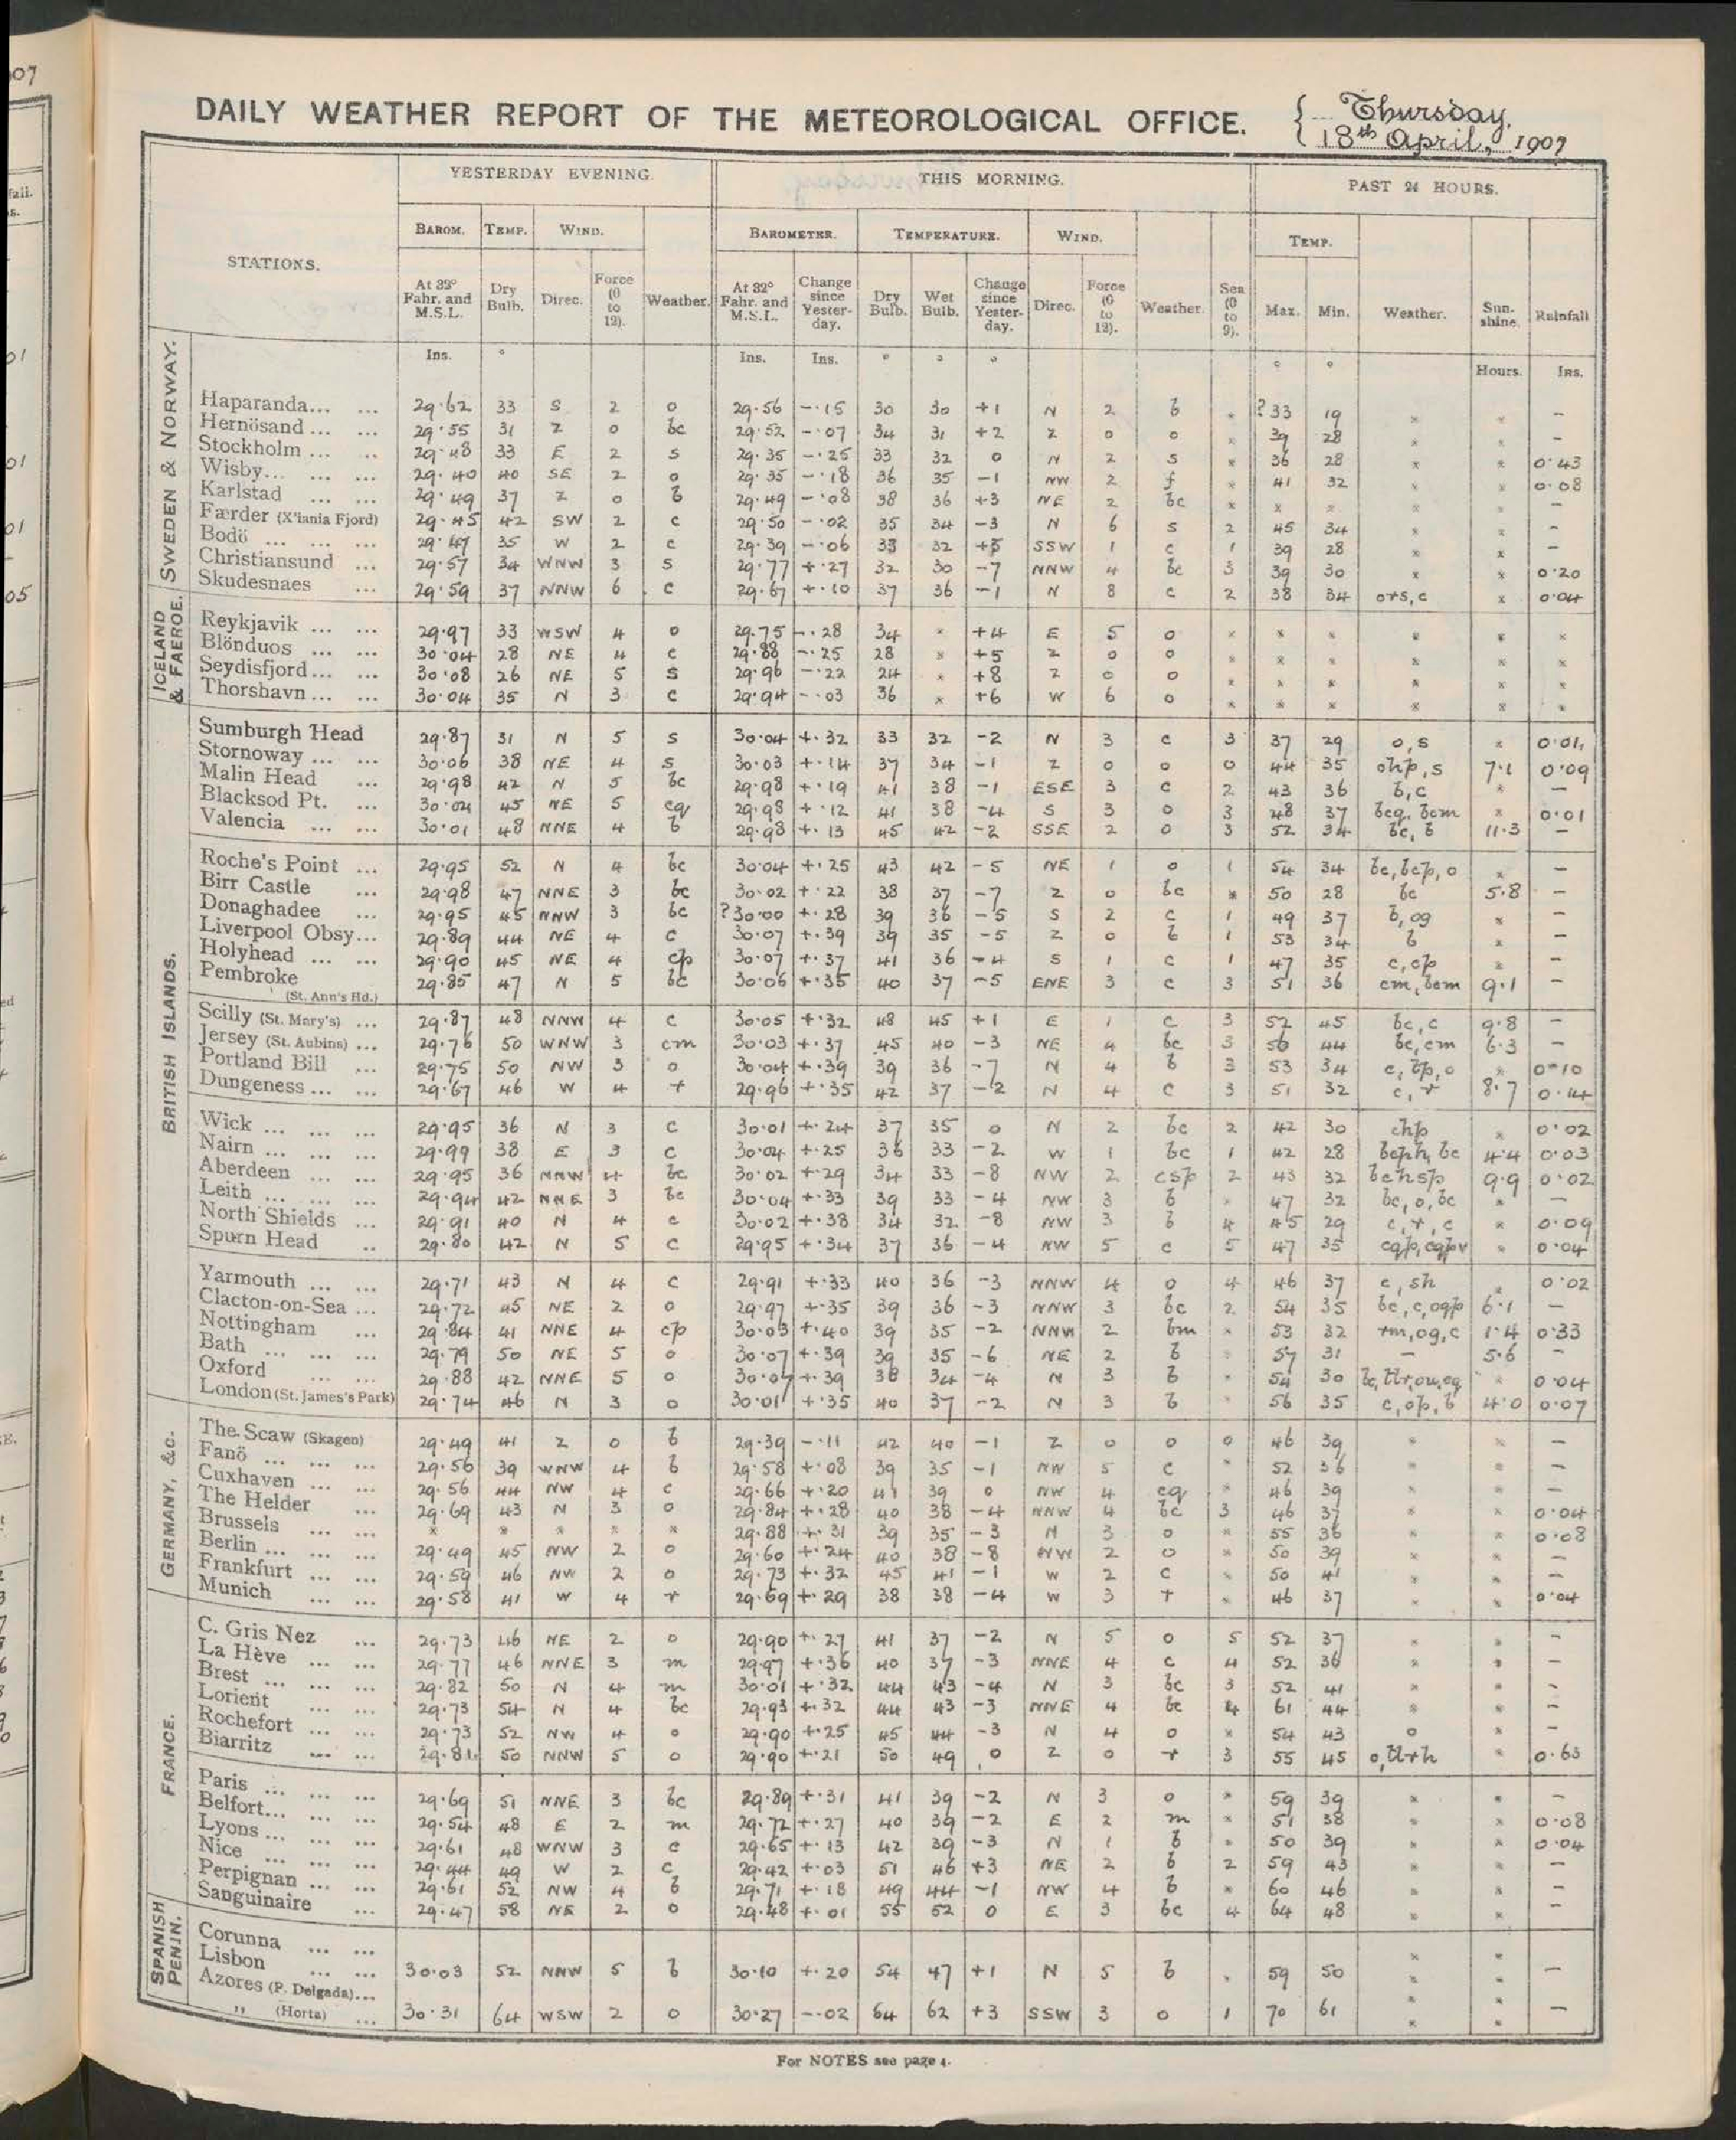 07
DAILY WEATHER REPORT OF THE METEOROLOGICAL OFFICE. { Thursday, 18th April, 1907
YESTERDAY EVENING. THIS MORNING. PAST 24 HOURS.
STATIONS. BAROM. TEMP. WIND. Weather. BAROMETER. TEMPERATURE. WIND. Weather. Sea (0 to 9). TEMP. Weather. Sun-shine. Rainfall
At 32° Fahr. and M.S.L. Dry Bulb. Direc. Force (0 to 12). At 32° Fahr. and M.S.L. Change since Yester-day. Dry Bulb. Wet Bulb. Change since Yester-day. Direc. Force (0 to 12). Max. Min.
Ins. ° Ins. Ins. ° ° ° ° ° Hours. Ins.
SWEDEN & NORWAY.
Haparanda... ... 29.62 33 S 2 o 29.56 -.15 30 30 +1 N 2 b × ?33 19 × × –
Hernösand ... ... 29.55 31 Z 0 bc 29.52 -.07 34 31 +2 Z 0 o × 39 28 × × –
Stockholm ... .. 29.48 33 E 2 s 29.35 -.25 33 32 0 N 2 s × 36 28 × × 0.43
Wisby... ... ... 29.40 40 SE 2 o 29.35 -.18 36 35 -1 NW 2 f × 41 32 × × 0.08
Karlstad ... ... 29.49 37 Z 0 b 29.49 -.08 38 36 +3 NE 2 bc × × × × × –
Færder (X'iania Fjord) 29.45 42 SW 2 c 29.50 -.02 35 34 -3 N 6 s 2 45 34 × × –
Bodö ... ... ... 29.47 35 W 2 c 29.39 -.06 33 32 +5 SSW 1 c 1 39 28 × × –
Christiansund ... 29.57 34 WNW 3 s 29.77 +.27 32 30 -7 NNW 4 bc 3 39 30 × × 0.20
Skudesnaes ... 29.59 37 NNW 6 c 29.67 +.10 37 36 -1 N 8 c 2 38 34 ors, c × 0.04
ICELAND & FAEROE.
Reykjavik ... ... 29.97 33 WSW 4 o 29.75 -.28 34 × +4 E 5 o × × × × × ×
Blönduos ... ... 30.04 28 NE 4 c 29.88 -.25 28 × +5 Z 0 o × × × × × ×
Seydisfjord... ... 30.08 26 NE 5 s 29.96 -.22 24 × +8 Z 0 o × × × × × ×
Thorshavn ... ... 30.04 35 N 3 c 29.94 -.03 36 × +6 W 6 o × × × × × ×
BRITISH ISLANDS.
Sumburgh Head 29.87 31 N 5 s 30.04 +.32 33 32 -2 N 3 c 3 37 29 o, s × 0.01
Stornoway ... ... 30.06 38 NE 4 s 30.03 +.14 37 34 -1 Z 0 o 0 44 35 ohp, s 7.1 0.09
Malin Head ... 29.98 42 N 5 bc 29.98 +.19 41 38 -1 ESE 3 c 2 43 36 b, c × –
Blacksod Pt. ... 30.04 45 NE 5 cq 29.98 +.12 41 38 -4 S 3 o 3 48 37 bcq, bcm × 0.01
Valencia ... ... 30.01 48 NNE 4 b 29.98 +.13 45 42 -2 SSE 2 o 3 52 34 bc, b 11.3 –
Roche's Point ... 29.95 52 N 4 bc 30.04 +.25 43 42 -5 NE 1 o 1 54 34 bc, bcp, o × –
Birr Castle ... 29.98 47 NNE 3 bc 30.02 +.22 38 37 -7 Z 0 bc × 50 28 bc 5.8 –
Donaghadee ... 29.95 45 NNW 3 bc ?30.00 +.28 39 36 -5 S 2 c 1 49 37 b, og × –
Liverpool Obsy... 29.89 44 NE 4 c 30.07 +.39 39 35 -5 Z 0 b 1 53 34 b × –
Holyhead ... ... 29.90 45 NE 4 cp 30.07 +.37 41 36 -4 S 1 c 1 47 35 c, cp × –
Pembroke (St. Ann's Hd.) 29.85 47 N 5 bc 30.06 +.35 40 37 -5 ENE 3 c 3 51 36 cm, bcm 9.1 –
Scilly (St. Mary's) ... 29.87 48 NNW 4 c 30.05 +.32 48 45 +1 E 1 c 3 52 45 bc, c 9.8 –
Jersey (St. Aubins) ... 29.76 50 WNW 3 cm 30.03 +.37 45 40 -3 NE 4 bc 3 56 44 bc, cm 6.3 –
Portland Bill ... 29.75 50 NW 3 o 30.04 +.39 39 36 -7 N 4 b 3 53 34 c, tp, o × 0.10
Dungeness ... ... 29.67 46 W 4 r 29.96 +.35 42 37 -2 N 4 c 3 51 32 c, r 8.7 0.14
Wick ... ... ... 29.95 36 N 3 c 30.01 +.24 37 35 0 N 2 bc 2 42 30 chp × 0.02
Nairn ... ... ... 29.99 38 E 3 c 30.04 +.25 36 33 -2 W 1 bc 1 42 28 bcph, bc 4.4 0.03
Aberdeen ... ... 29.95 36 NNW 4 bc 30.02 +.29 34 33 -8 NW 2 csp 2 43 32 bchsp 9.9 0.02
Leith ... ... ... 29.94 42 NNE 3 bc 30.04 +.33 39 33 -4 NW 3 b × 47 32 bc, o, bc × –
North Shields ... 29.91 40 N 4 c 30.02 +.38 34 32 -8 NW 3 b 4 45 29 c, r, c × 0.09
Spurn Head .. 29.80 42 N 5 c 29.95 +.34 37 36 -4 NW 5 c 5 47 35 cqp, cqpv × 0.04
Yarmouth ... ... 29.71 43 N 4 c 29.91 +.33 40 36 -3 NNW 4 o 4 46 37 c, sh × 0.02
Clacton-on-Sea ... 29.72 45 NE 2 o 29.97 +.35 39 36 -3 NNW 3 bc 2 54 35 bc, c, ogp 6.1 –
Nottingham ... 29.84 41 NNE 4 cp 30.03 +.40 39 35 -2 NNW 2 bm × 53 32 rm, og, c 1.4 0.33
Bath ... ... ... 29.79 50 NE 5 o 30.07 +.39 39 35 -6 NE 2 b × 57 31 – 5.6 –
Oxford ... ... 29.88 42 NNE 5 o 30.07 +.39 38 34 -4 N 3 b × 54 30 bc, tlr, ou, cq × 0.04
London (St. James's Park) 29.74 46 N 3 o 30.01 +.35 40 37 -2 N 3 b × 56 35 c, op, b 4.0 0.07
GERMANY, &c.
The Scaw (Skagen) 29.49 41 Z 0 b 29.39 -.11 42 40 -1 Z 0 o 0 46 39 × × –
Fanö ... ... ... 29.56 39 WNW 4 b 29.58 +.08 39 35 -1 NW 5 c × 52 36 × × –
Cuxhaven ... ... 29.56 44 NW 4 c 29.66 +.20 41 39 0 NW 4 cq × 46 39 × × –
The Helder ... 29.69 43 N 3 o 29.84 +.28 40 38 -4 NNW 4 bc 3 46 37 × × 0.04
Brussels ... ... × × × × × 29.88 +.31 39 35 -3 N 3 o × 55 36 × × 0.08
Berlin ... ... ... 29.49 45 NW 2 o 29.60 +.24 40 38 -8 NW 2 o × 50 39 × × –
Frankfurt ... ... 29.59 46 NW 2 o 29.73 +.32 45 41 -1 W 2 c × 50 41 × × –
Munich ... ... 29.58 41 W 4 r 29.69 +.29 38 38 -4 W 3 r × 46 37 × × 0.04
FRANCE.
C. Gris Nez ... 29.73 46 NE 2 o 29.90 +.27 41 37 -2 N 5 o 5 52 37 × × –
La Hève ... ... 29.77 46 NNE 3 m 29.97 +.36 40 37 -3 NNE 4 c 4 52 36 × × –
Brest ... ... ... 29.82 50 N 4 m 30.01 +.32 44 43 -4 N 3 bc 3 52 41 × × –
Lorient ... ... 29.73 54 N 4 bc 29.93 +.32 44 43 -3 NNE 4 bc 4 61 44 × × –
Rochefort ... ... 29.73 52 NW 4 o 29.90 +.25 45 44 -3 N 4 o × 54 43 o × –
Biarritz ... ... 29.81 50 NNW 5 o 29.90 +.21 50 49 0 Z 0 r 3 55 45 o, tlrh × 0.63
Paris ... ... ... 29.69 51 NNE 3 bc 29.89 +.31 41 39 -2 N 3 o × 59 39 × × –
Belfort... ... ... 29.54 48 E 2 m 29.72 +.27 40 39 -2 E 2 m × 51 38 × × 0.08
Lyons ... ... ... 29.61 48 WNW 3 c 29.65 +.13 42 39 -3 N 1 b × 50 39 × × 0.04
Nice ... ... ... 29.44 49 W 2 c 29.42 +.03 51 46 +3 NE 2 b 2 59 43 × × –
Perpignan ... ... 29.61 52 NW 4 b 29.71 +.18 49 44 -1 NW 4 b × 60 46 × × –
Sanguinaire ... 29.47 58 NE 2 o 29.48 +.01 55 52 0 E 3 bc 4 64 48 × × –
SPANISH PENIN.
Corunna ... ... × ×
Lisbon ... ... 30.03 52 NNW 5 b 30.10 +.20 54 47 +1 N 5 b × 59 50 × × –
Azores (P. Delgada)... × ×
,, (Horta) ... 30.31 64 WSW 2 o 30.27 -.02 64 62 +3 SSW 3 o 1 70 61 × × –
For NOTES see page 4.